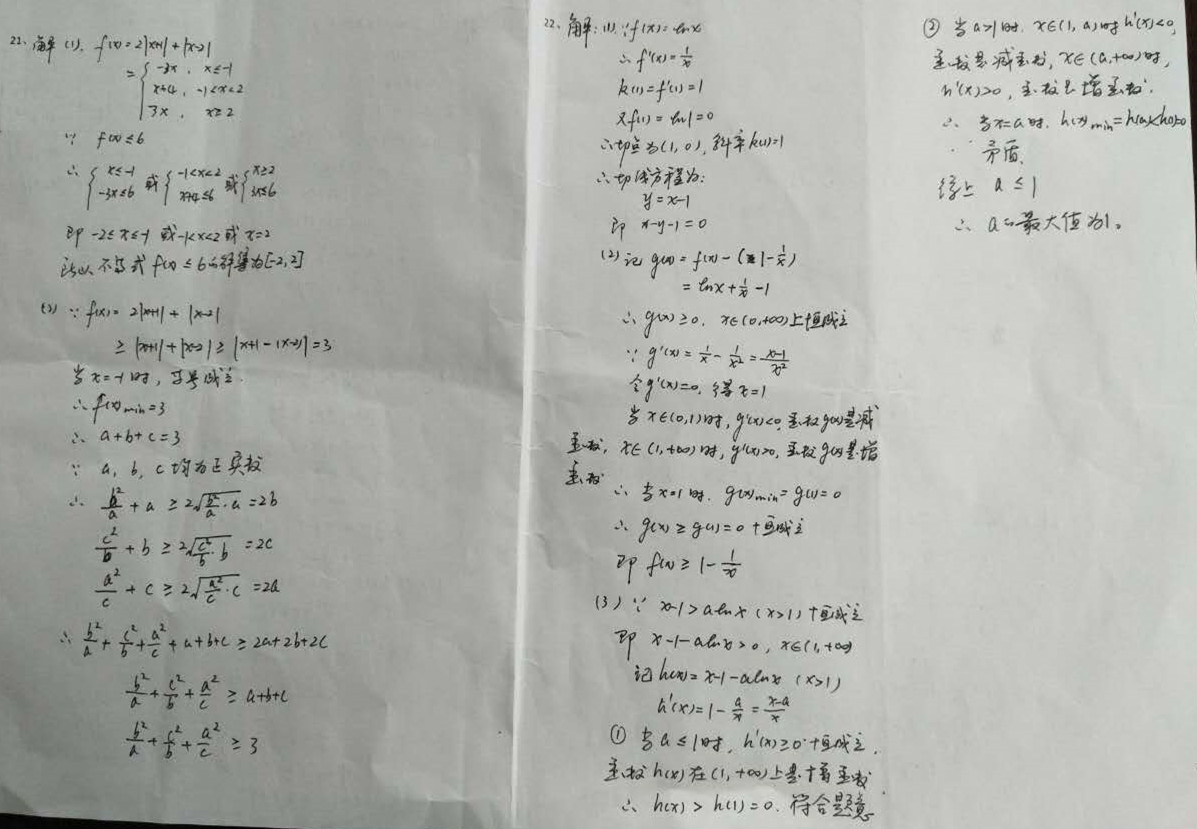 22. 解 (1). f(x) = 2|x+1| + |x-2|
= { -3x , x≤-1
x+4 , -1<x<2
3x , x≥2
∵ f(x) ≤ 6
∴ { x≤-1 -3x≤6 或 { -1<x<2 x+4≤6 或 { x≥2 3x≤6
即 -2≤x≤-1 或 -1<x<2 或 x=2
所以 不等式 f(x) ≤ 6 的解集为[-2,2]
(2) ∵ f(x) = 2|x+1| + |x-2|
≥ |x+1| + |x-2| ≥ |x+1-(x-2)| = 3
当 x=-1 时, 等号成立.
∴ f(x)min=3
∴ a+b+c=3
∵ a, b, c 均为正实数
∴ b²/a + a ≥ 2√(b²/a · a) = 2b
c²/b + b ≥ 2√(c²/b · b) = 2c
a²/c + c ≥ 2√(a²/c · c) = 2a
∴ b²/a + c²/b + a²/c + a+b+c ≥ 2a+2b+2c
b²/a + c²/b + a²/c ≥ a+b+c
b²/a + c²/b + a²/c ≥ 3
22. 解: (1). ∵ f(x) = lnx
∴ f'(x) = 1/x
k(1) = f'(1) = 1
又f(1) = ln1 = 0
∴ 切点为(1, 0), 斜率k(1)=1
∴ 切线方程为:
y = x-1
即 x-y-1=0
(2) 记 g(x) = f(x) - (1-1/x)
= lnx + 1/x - 1
∴ g(x) ≥ 0. x∈(0,+∞)上恒成立
∵ g'(x) = 1/x - 1/x² = (x-1)/x²
令 g'(x)=0, 得 x=1
当 x∈(0,1)时, g'(x)<0, 函数g(x)是减
函数, x∈(1,+∞)时, g'(x)>0, 函数g(x)是增
函数
∴ 当x=1时. g(x)min = g(1) = 0
∴ g(x) ≥ g(1) = 0 恒成立
即 f(x) ≥ 1 - 1/x
(3) ∵ x-1 > alnx (x>1) 恒成立
即 x-1-alnx > 0, x∈(1,+∞)
记 h(x) = x-1-alnx (x>1)
h'(x) = 1 - a/x = (x-a)/x
① 当 a≤1时, h'(x) ≥ 0 恒成立.
函数 h(x) 在 (1, +∞) 上是增函数
∴ h(x) > h(1) = 0. 符合题意
② 当 a>1时. x∈(1, a)时 h'(x)<0,
函数是减函数, x∈(a,+∞)时,
h'(x)>0, 函数是增函数.
∴ 当x=a时. h(x)min = h(a)<h(1)=0
矛盾.
综上 a≤1
∴ a的最大值为1。